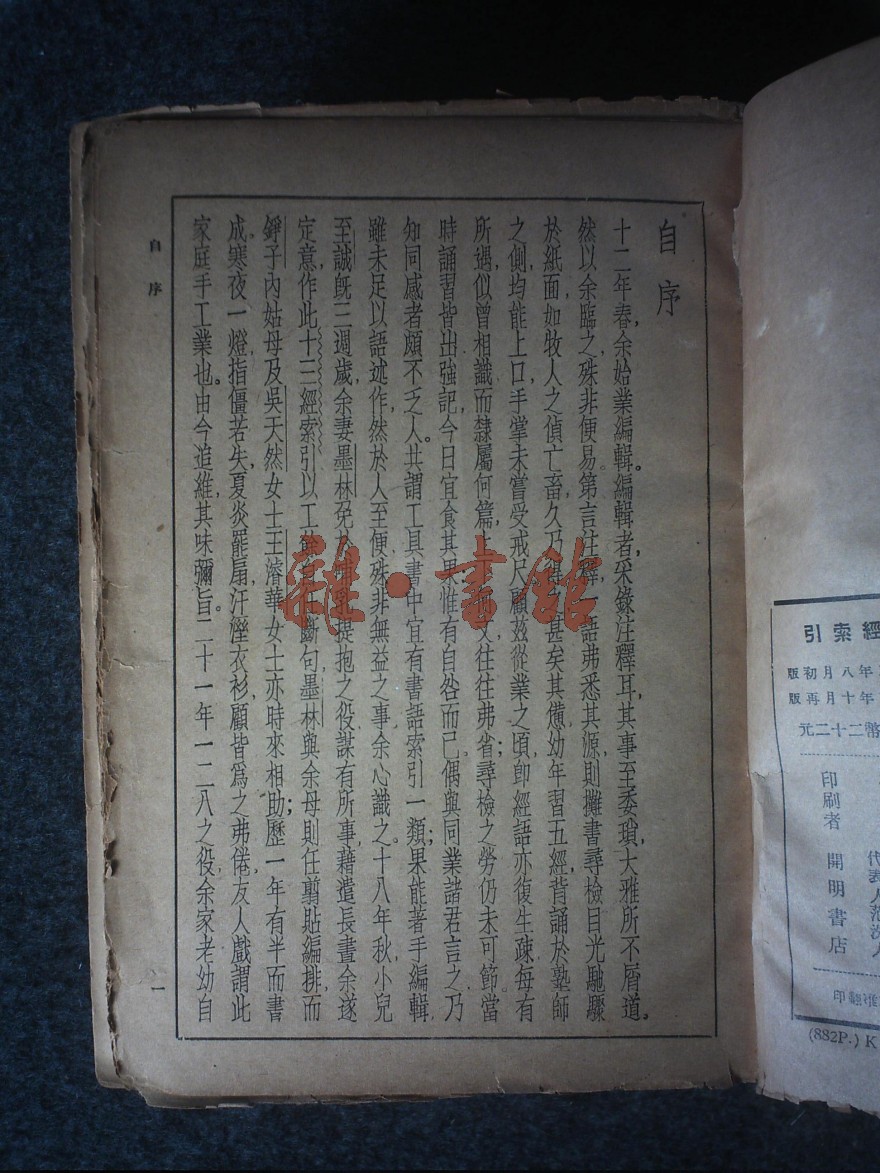 自序
十二年春,余始業編輯。編輯者,采錄注釋耳,其事至委瑣,大雅所不屑道。
然以余臨之,殊非便易。第言注釋,一語弗悉其源,則攤書尋檢,目光馳驟
於紙面,如牧人之偵亡畜,久乃得之,甚矣其憊。幼年習五經,背誦於塾師
之側,均能上口,手掌未嘗受戒尺。顧茲從業之頃,即經語亦復生疎,每有
所遇,似曾相識,而隸屬何篇,上文往往弗省;尋檢之勞,仍未可節。當
時誦習,皆出強記,今日宜食其果,惟有自咎而已。偶與同業諸君言之,乃
知同感者頗不乏人。共謂工具書中宜有書語索引一類;果能著手編輯,
雖未足以語述作,然於人至便,殊非無益之事。余心識之。十八年秋,小兒
至誠旣三週歲,余妻墨林免哺乳提抱之役,謀有所事,藉遣長晝,余遂
定意作此十三經索引。以工餘斷句,墨林與余母則任翦貼編排,而
錚子內姑母及吳天然女士王濬華女士亦時來相助;歷一年有半而書
成。寒夜一燈,指僵若失,夏炎罷扇,汗溼衣衫,顧皆爲之弗倦。友人戲謂此
家庭手工業也。由今追維,其味彌旨。二十一年一二八之役,余家老幼自
自序
一
雜·書館
經索引
年八月初版
年十月再版
幣二十二元
印刷者
開明書店
代表人范洗人
(882P.) K